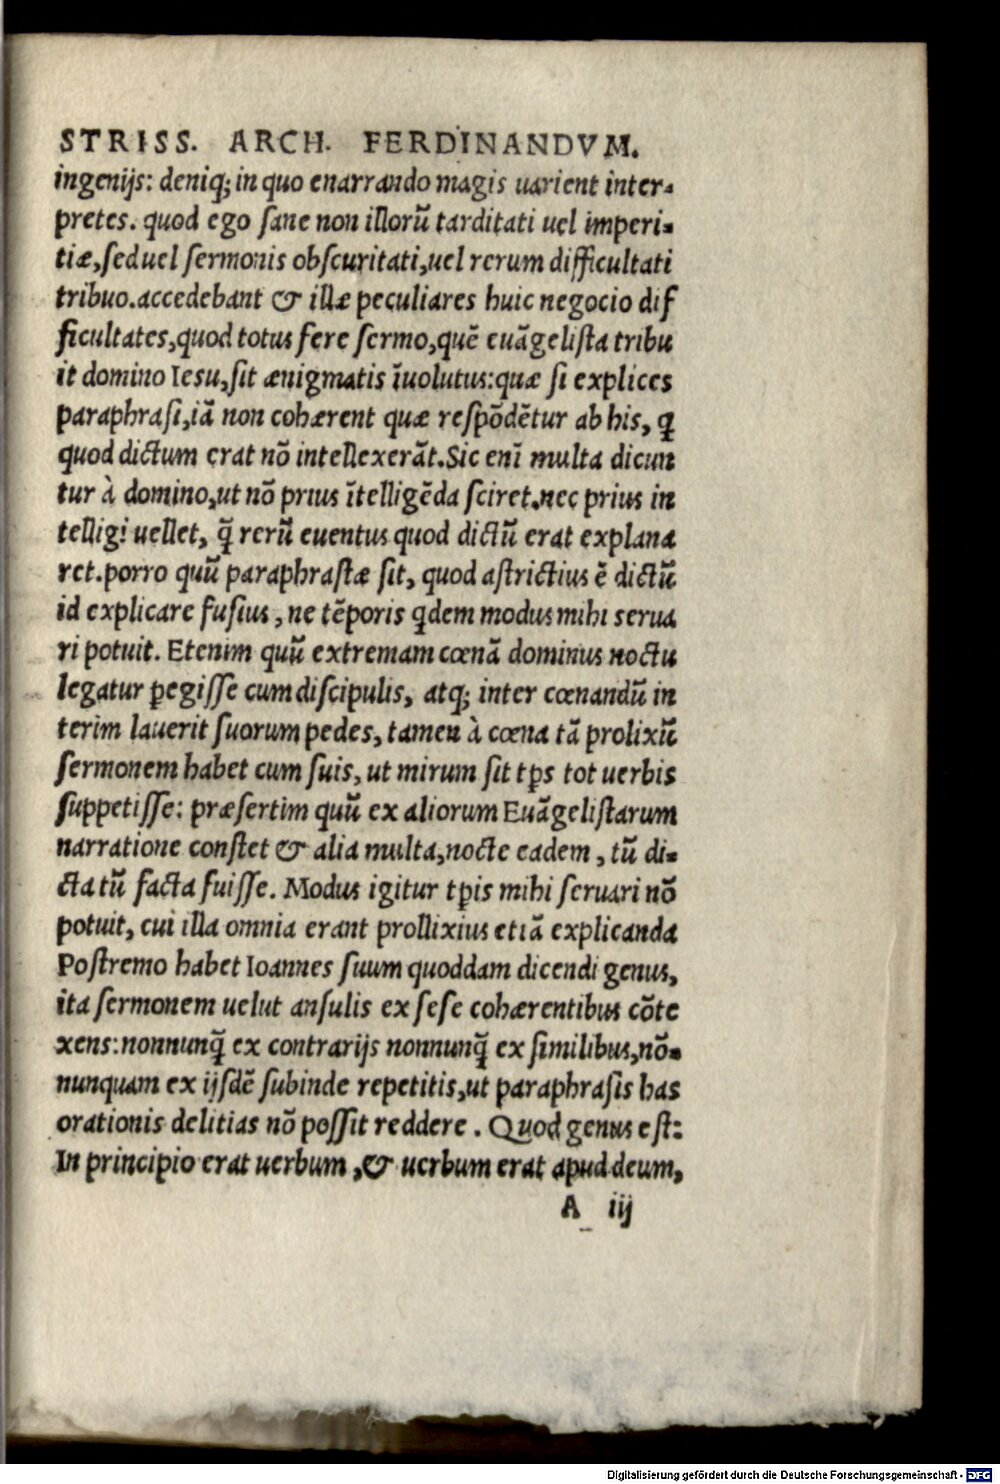 STRISS. ARCH. FERDINANDVM.
ingenijs: deniq; in quo enarrando magis uarient inter-
pretes. quod ego sane non illorū tarditati uel imperi-
tiæ, sed uel sermonis obscuritati, uel rerum difficultati
tribuo. accedebant & illæ peculiares huic negocio dif
ficultates, quod totus fere sermo, quē euāgelista tribu
it domino Iesu, sit ænigmatis īuolutus: quæ si explices
paraphrasi, iā non cohærent quæ respōdētur ab his, ꝗ
quod dictum erat nō intellexerāt. Sic enī multa dicun
tur à domino, ut nō prius ītelligēda sciret, nec prius in
telligi uellet, q̄ rerū euentus quod dictū erat explana
ret. porro quū paraphrastæ sit, quod astrictius ē dictū
id explicare fusius, ne tēporis ꝗdem modus mihi serua
ri potuit. Etenim quū extremam cœnā dominus noctu
legatur ꝑegisse cum discipulis, atq; inter cœnandū in
terim lauerit suorum pedes, tamen à cœna tā prolixū
sermonem habet cum suis, ut mirum sit tp̄s tot uerbis
suppetisse: præsertim quū ex aliorum Euāgelistarum
narratione constet & alia multa, nocte eadem, tū di-
cta tū facta fuisse. Modus igitur tꝑis mihi seruari nō
potuit, cui illa omnia erant prollixius etiā explicanda
Postremo habet Ioannes suum quoddam dicendi genus,
ita sermonem uelut ansulis ex sese cohærentibus cōte
xens: nonnunq̄ ex contrarijs nonnunq̄ ex similibus, nō-
nunquam ex ijsdē subinde repetitis, ut paraphrasis has
orationis delitias nō possit reddere. Quod genus est:
In principio erat uerbum, & uerbum erat apud deum,
A iij
Digitalisierung gefördert durch die Deutsche Forschungsgemeinschaft - DFG